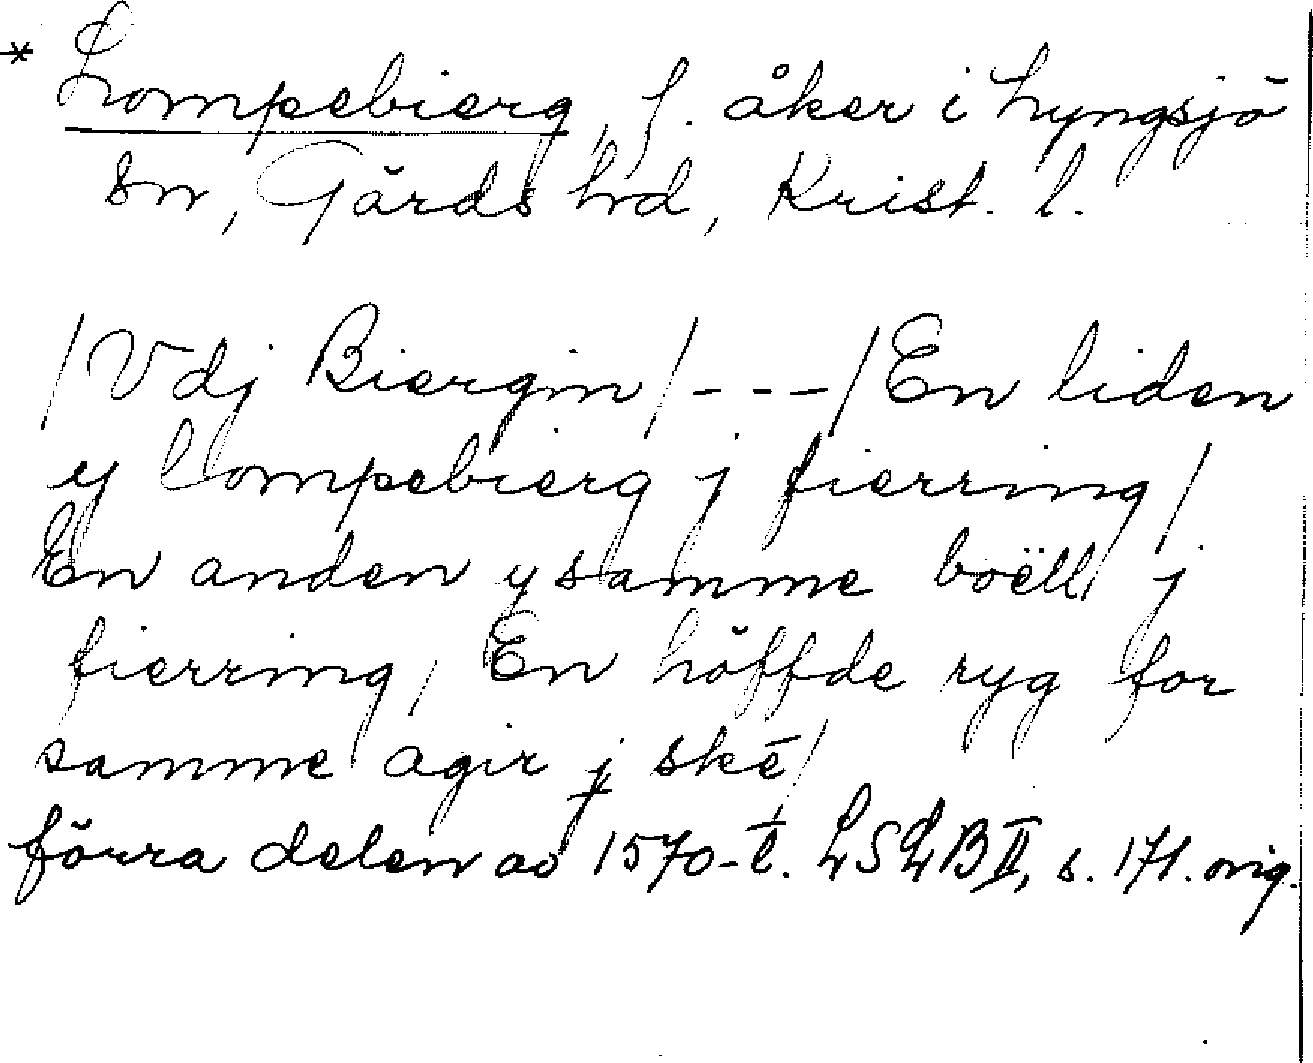 * Lompebierg, f. åker i Lyngsjö
sn, Gärds hrd, Krist. l.
/ Vdj Biergin / - - - / En liden
y lompebierg j fierring /
En anden y samme boëll j
fierring / En höffde ryg for
samme agir j skē /
förra delen av 1570-t. LSLB II, s. 171. orig.